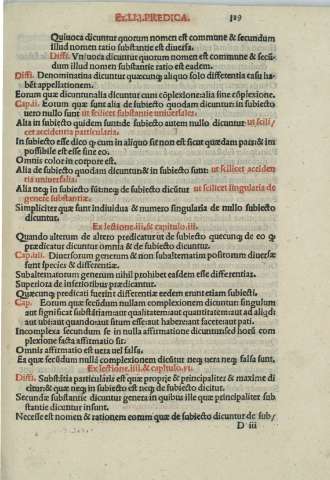 Ex LI.I.PREDICA. 119
Quiuoca dicuntur quorum nomen est commune & secundum
illud nomen ratio substantie est diuersa.
Diffi. Vniuoca dicuntur quorum nomen est commune & secū
dum illud nomen substantie ratio est eadem.
Diffi. Denominatiua dicuntur quæcunq; aliquo solo differentia casu ha
bēt appellationem.
Eorum quæ dicuntur alia dicuntur cum cōplexione: alia sine cōplexione.
Cap.ii. Eorum quæ sunt alia de subiecto quodam dicuntur: in subiecto
uero nullo sunt ut scilicet substantie uniuersales.
Alia in subiecto quidem sunt: de subiecto autem nullo dicuntur ut scili/
cet accidentia particularia.
In subiecto esse dico q; cum in aliquo sit non est sicut quædam pars: & im
possibile est esse sine eo.
Omnis color in corpore est.
Alia de subiecto quodam dicuntur: & in subiecto sunt: ut scilicet acciden
tia uniuersalia.
Alia neq; in subiecto sūt: neq; de subiecto dicūtur ut scilicet singularia de
genere substantiæ.
Simpliciter quæ sunt indiuidua & numero singularia de nullo subiecto
dicuntur.
Ex lectione.iii. & capitulo.iii.
Quando alterum de altero prædicatur ut de subiecto quæcunq; de eo q;
prædicatur dicuntur omnia & de subiecto dicuntur.
Cap.iiii. Diuersorum generum & non subalternatim positorum diuersæ
sunt species & differentiæ.
Subalternatorum generum nihil prohibet easdem esse differentias.
Superiora de inferioribus prædicantur.
Quæcunq; prædicati fuerint differentiæ eedem erunt etiam subiecti.
Cap. Eorum quæ secūdum nullam complexionem dicuntur singulum
aut significat substātiam: aut qualitatem: aut quantitatem: aut ad aliqd:
aut ubi: aut quando: aut situm esse: aut habere: aut facere: aut pati.
Incomplexa secundum se in nulla affirmatione dicuntur: sed horū com
plexione facta affirmatio fit.
Omnis affirmatio est uera uel falsa.
Ea quæ secūdum nullā complexionem dicūtur neq; uera neq; falsa sunt.
Ex lectione.iiii. & capitulo.vi.
Diffi. Substātia particularis est quæ proprie & principaliter & maxime di
citur: & quæ neq; in subiecto est neq; de subiecto dicitur.
Secundæ substantiæ dicuntur genera in quibus ille quæ principaliter sub
stantie dicuntur insunt.
Necesse est nomen & rationem eorum quæ de subiecto dicuntur de sub/
D iii